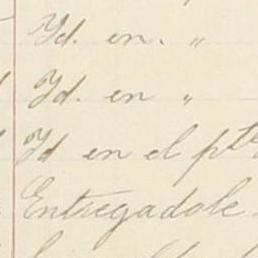 Yd. en. "
Yd. en "
Yd en el pte
Entregadole